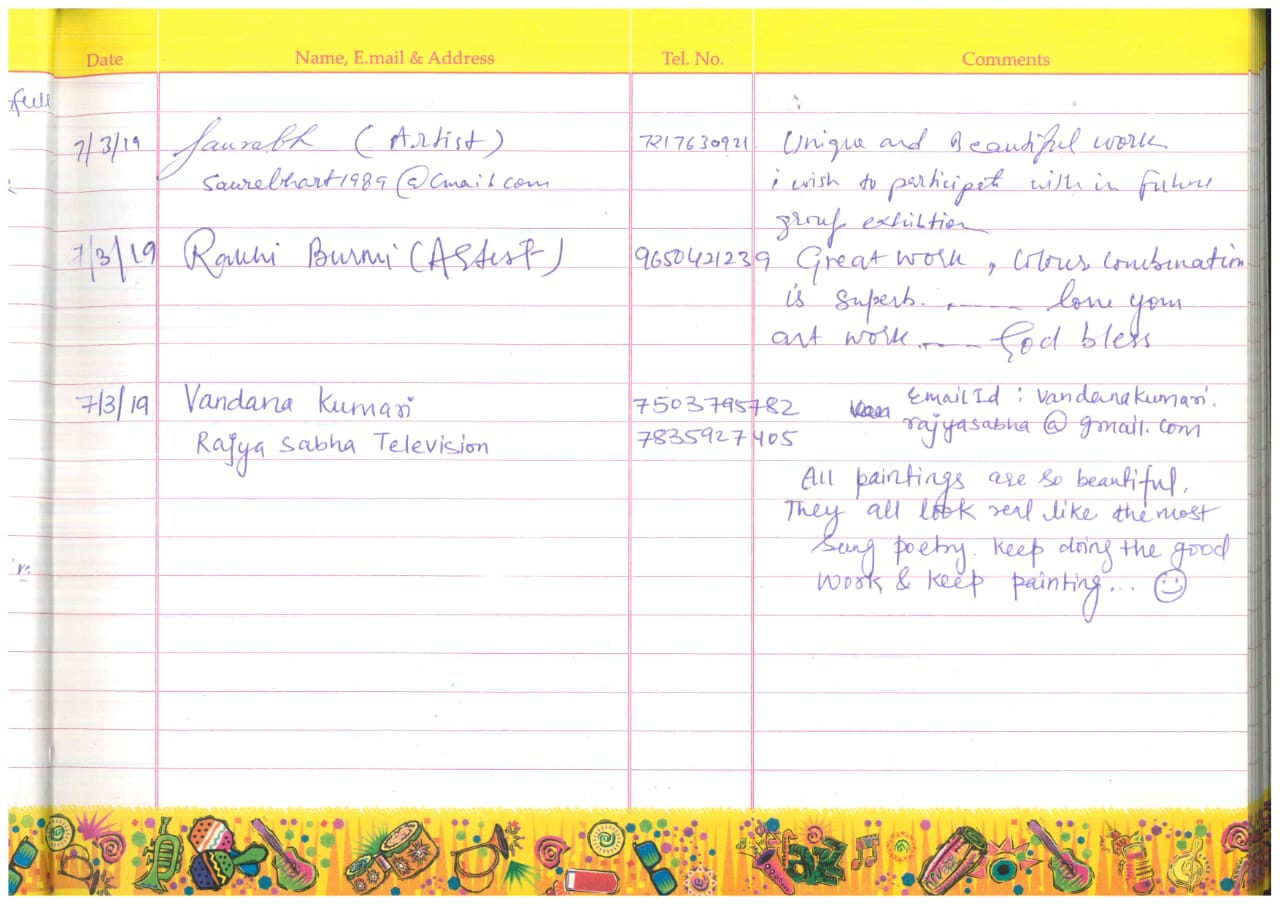 Date Name, E.mail & Address Tel. No. Comments
full
7/3/19 Saurabh (Artist) 7217630921 Unique and Beautiful work
saurebhart1989@Gmail.com i wish to participet with in future
group exhibtion
7/3/19 Rakhi Burmi (Artist) 9650421239 Great work, colour combination
is superb. love your
art work God bless
7/3/19 Vandana Kumari 7503795782 Email Id : vandanakumari.
Rajya Sabha Television 7835927405 rajyasabha@gmail.com
All paintings are so beautiful.
They all look real like the most
sung poetry. Keep doing the good
work & keep painting... ☺